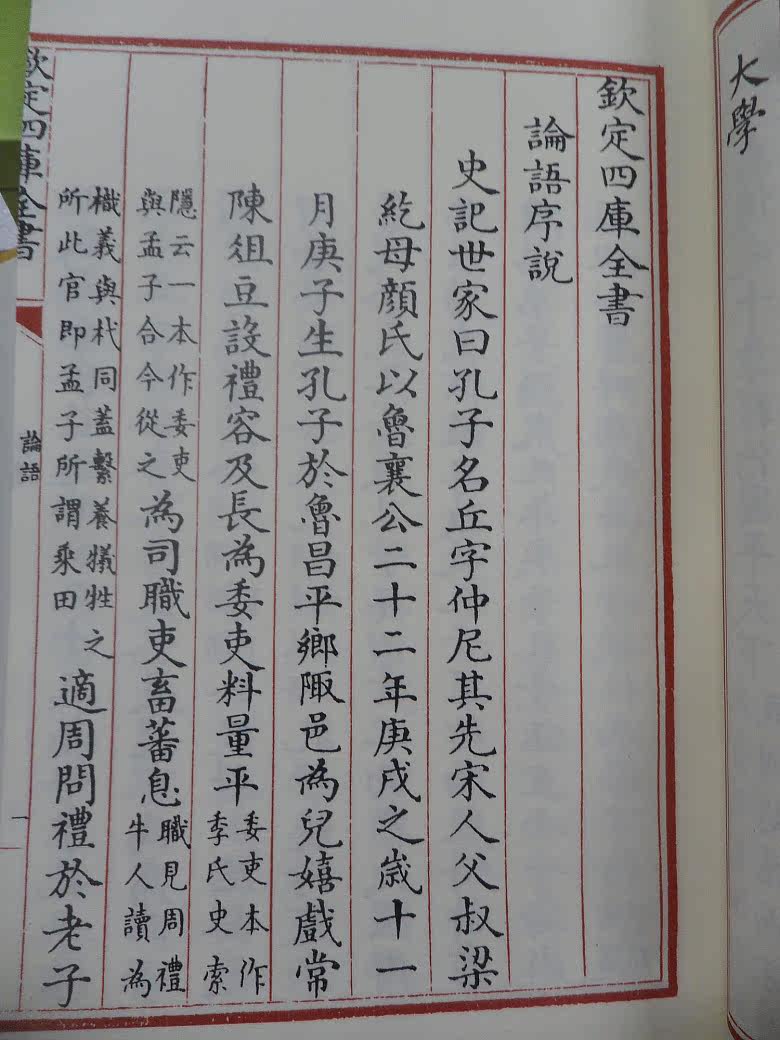 大學
欽定四庫全書
論語序說
史記世家曰孔子名丘字仲尼其先宋人父叔梁
紇母顔氏以魯襄公二十二年庚戌之歲十一
月庚子生孔子於魯昌平鄉陬邑為兒嬉戲常
陳俎豆設禮容及長為委吏料量平委吏本作季氏史索
隱云一本作委吏與孟子合今從之為司職吏畜蕃息職見周禮牛人讀為
樴義與杙同蓋繫養犧牲之所此官即孟子所謂乘田適周問禮於老子
欽定四庫全書
論語
一